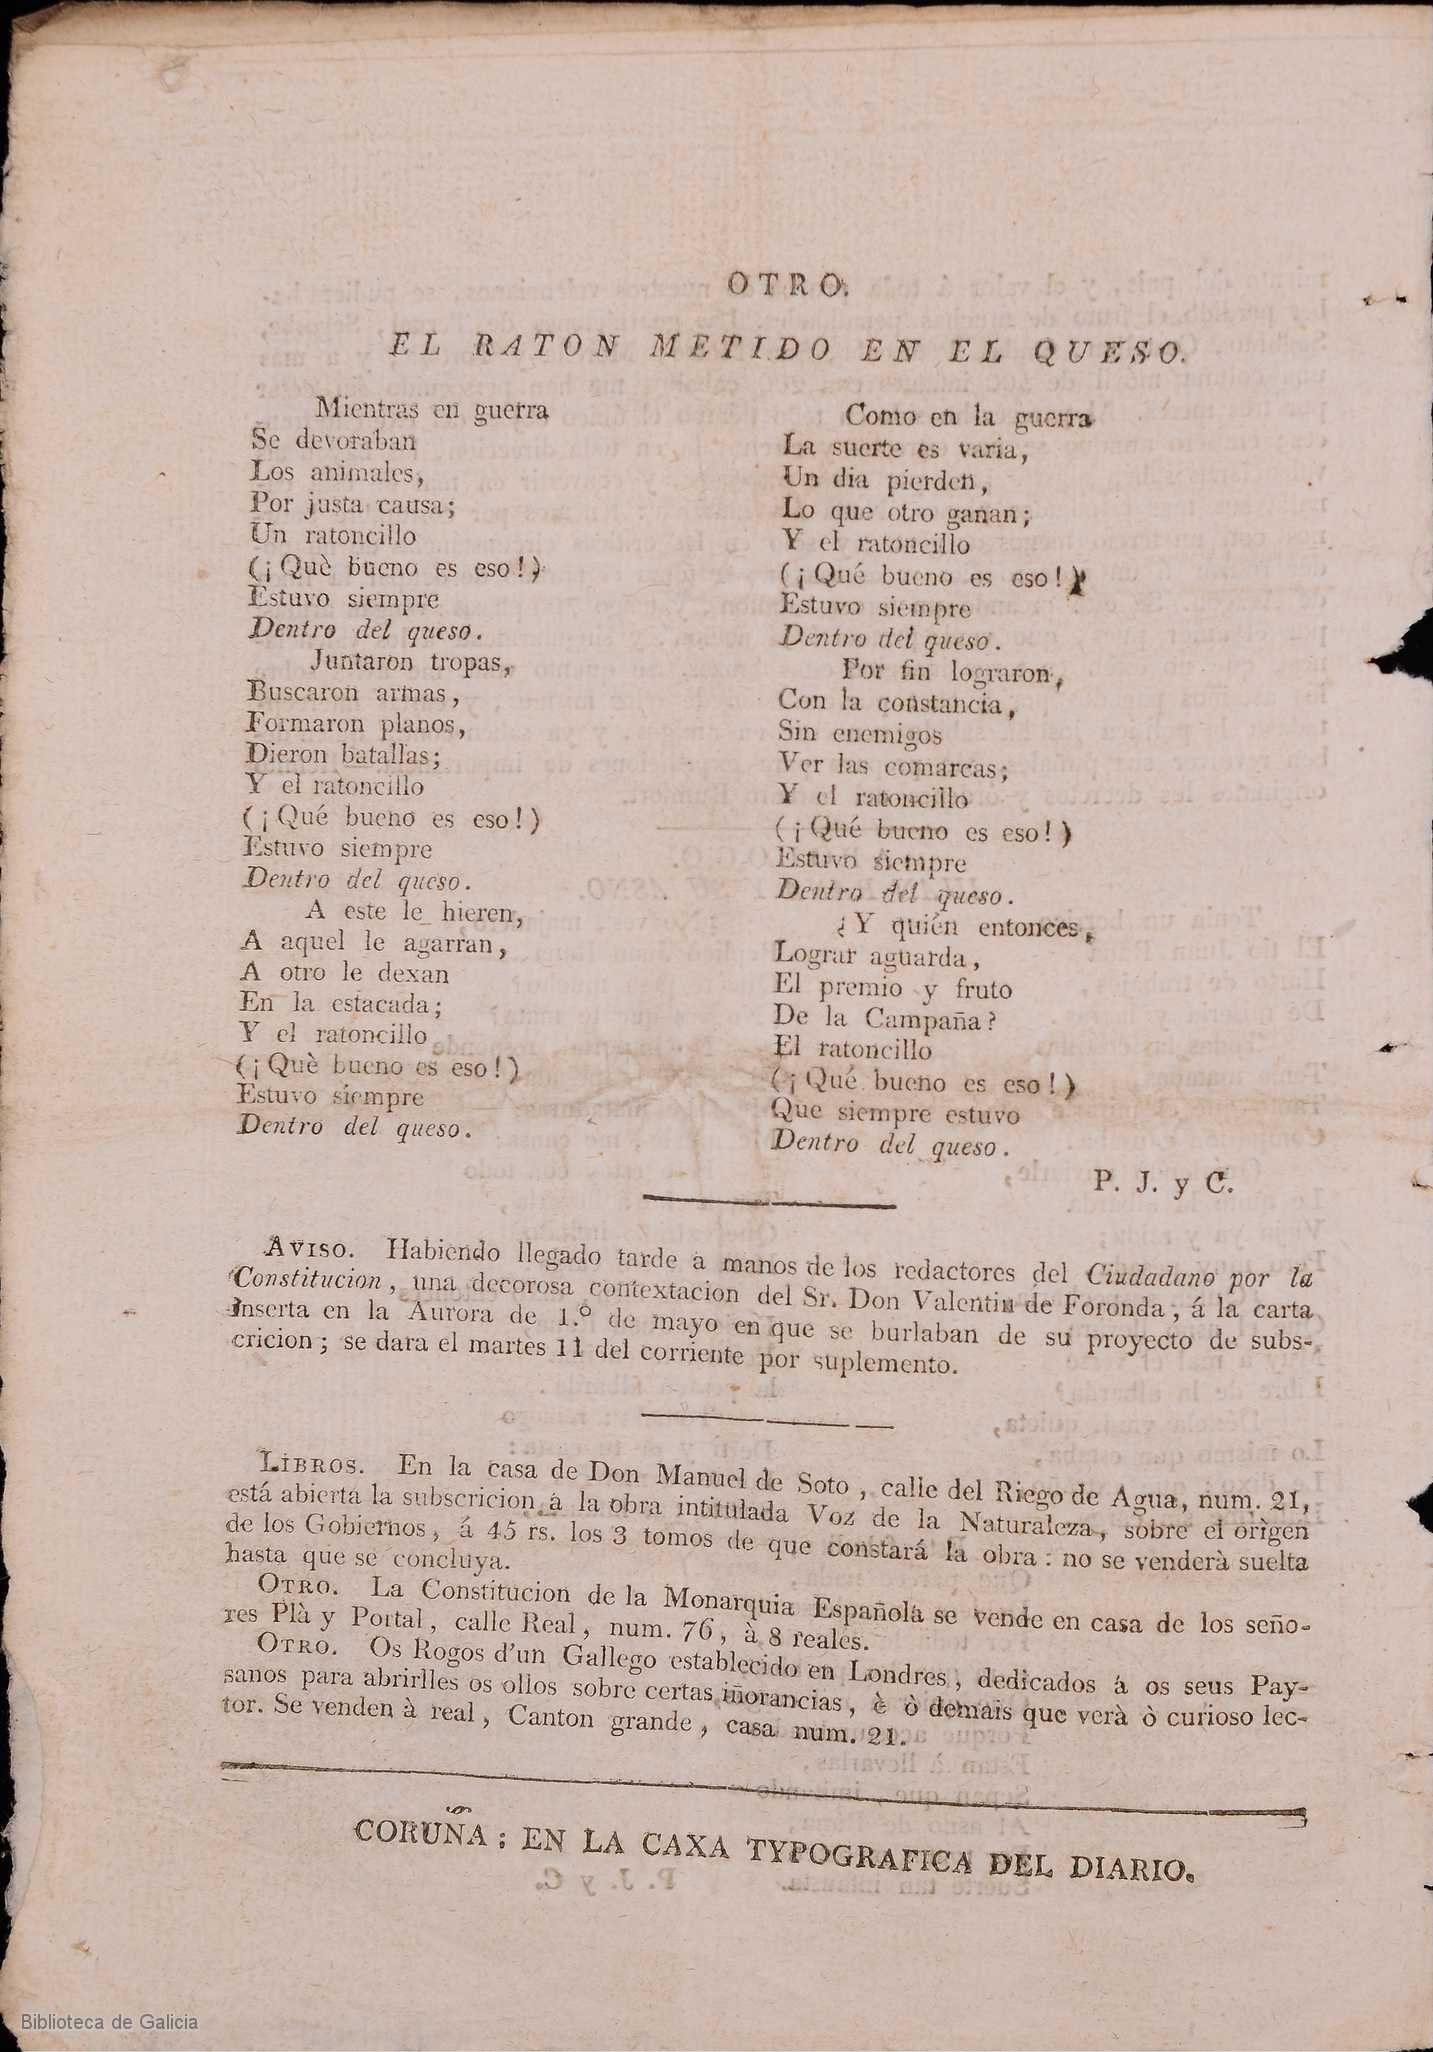 OTRO.
EL RATON METIDO EN EL QUESO.
Mientras en guerra
Se devoraban
Los animales,
Por justa causa;
Un ratoncillo
(¡Què bueno es eso!)
Estuvo siempre
Dentro del queso.
Juntaron tropas,
Buscaron armas,
Formaron planos,
Dieron batallas;
Y el ratoncillo
(¡Qué bueno es eso!)
Estuvo siempre
Dentro del queso.
A este le hieren,
A aquel le agarran,
A otro le dexan
En la estacada;
Y el ratoncillo
(¡Què bueno es eso!)
Estuvo siempre
Dentro del queso.
Como en la guerra
La suerte es varia,
Un dia pierden,
Lo que otro ganan;
Y el ratoncillo
(¡Qué bueno es eso!)
Estuvo siempre
Dentro del queso.
Por fin lograron,
Con la constancia,
Sin enemigos
Ver las comarcas;
Y el ratoncillo
(¡Qué bueno es eso!)
Estuvo siempre
Dentro del queso.
¿Y quién entonces,
Lograr aguarda,
El premio y fruto
De la Campaña?
El ratoncillo
(¡Qué bueno es eso!)
Que siempre estuvo
Dentro del queso.
P. J. y C.
AVISO. Habiendo llegado tarde à manos de los redactores del Ciudadano por la
Constitucion, una decorosa contextacion del Sr. Don Valentin de Foronda, á la carta
inserta en la Aurora de 1.º de mayo en que se burlaban de su proyecto de subs-
cricion; se dara el martes 11 del corriente por suplemento.
LIBROS. En la casa de Don Manuel de Soto, calle del Riego de Agua, num. 21,
está abierta la subscricion à la obra intitulada Voz de la Naturaleza, sobre el orìgen
de los Gobiernos, á 45 rs. los 3 tomos de que constará la obra: no se venderà suelta
hasta que se concluya.
OTRO. La Constitucion de la Monarquia Española se vende en casa de los seño-
res Plà y Portal, calle Real, num. 76, à 8 reales.
OTRO. Os Rogos d'un Gallego establecido en Londres, dedicados á os seus Pay-
sanos para abrirlles os ollos sobre certas iñorancias, è ò demais que verà ò curioso lec-
tor. Se venden à real, Canton grande, casa num. 21.
CORUÑA: EN LA CAXA TYPOGRAFICA DEL DIARIO.
Biblioteca de Galicia